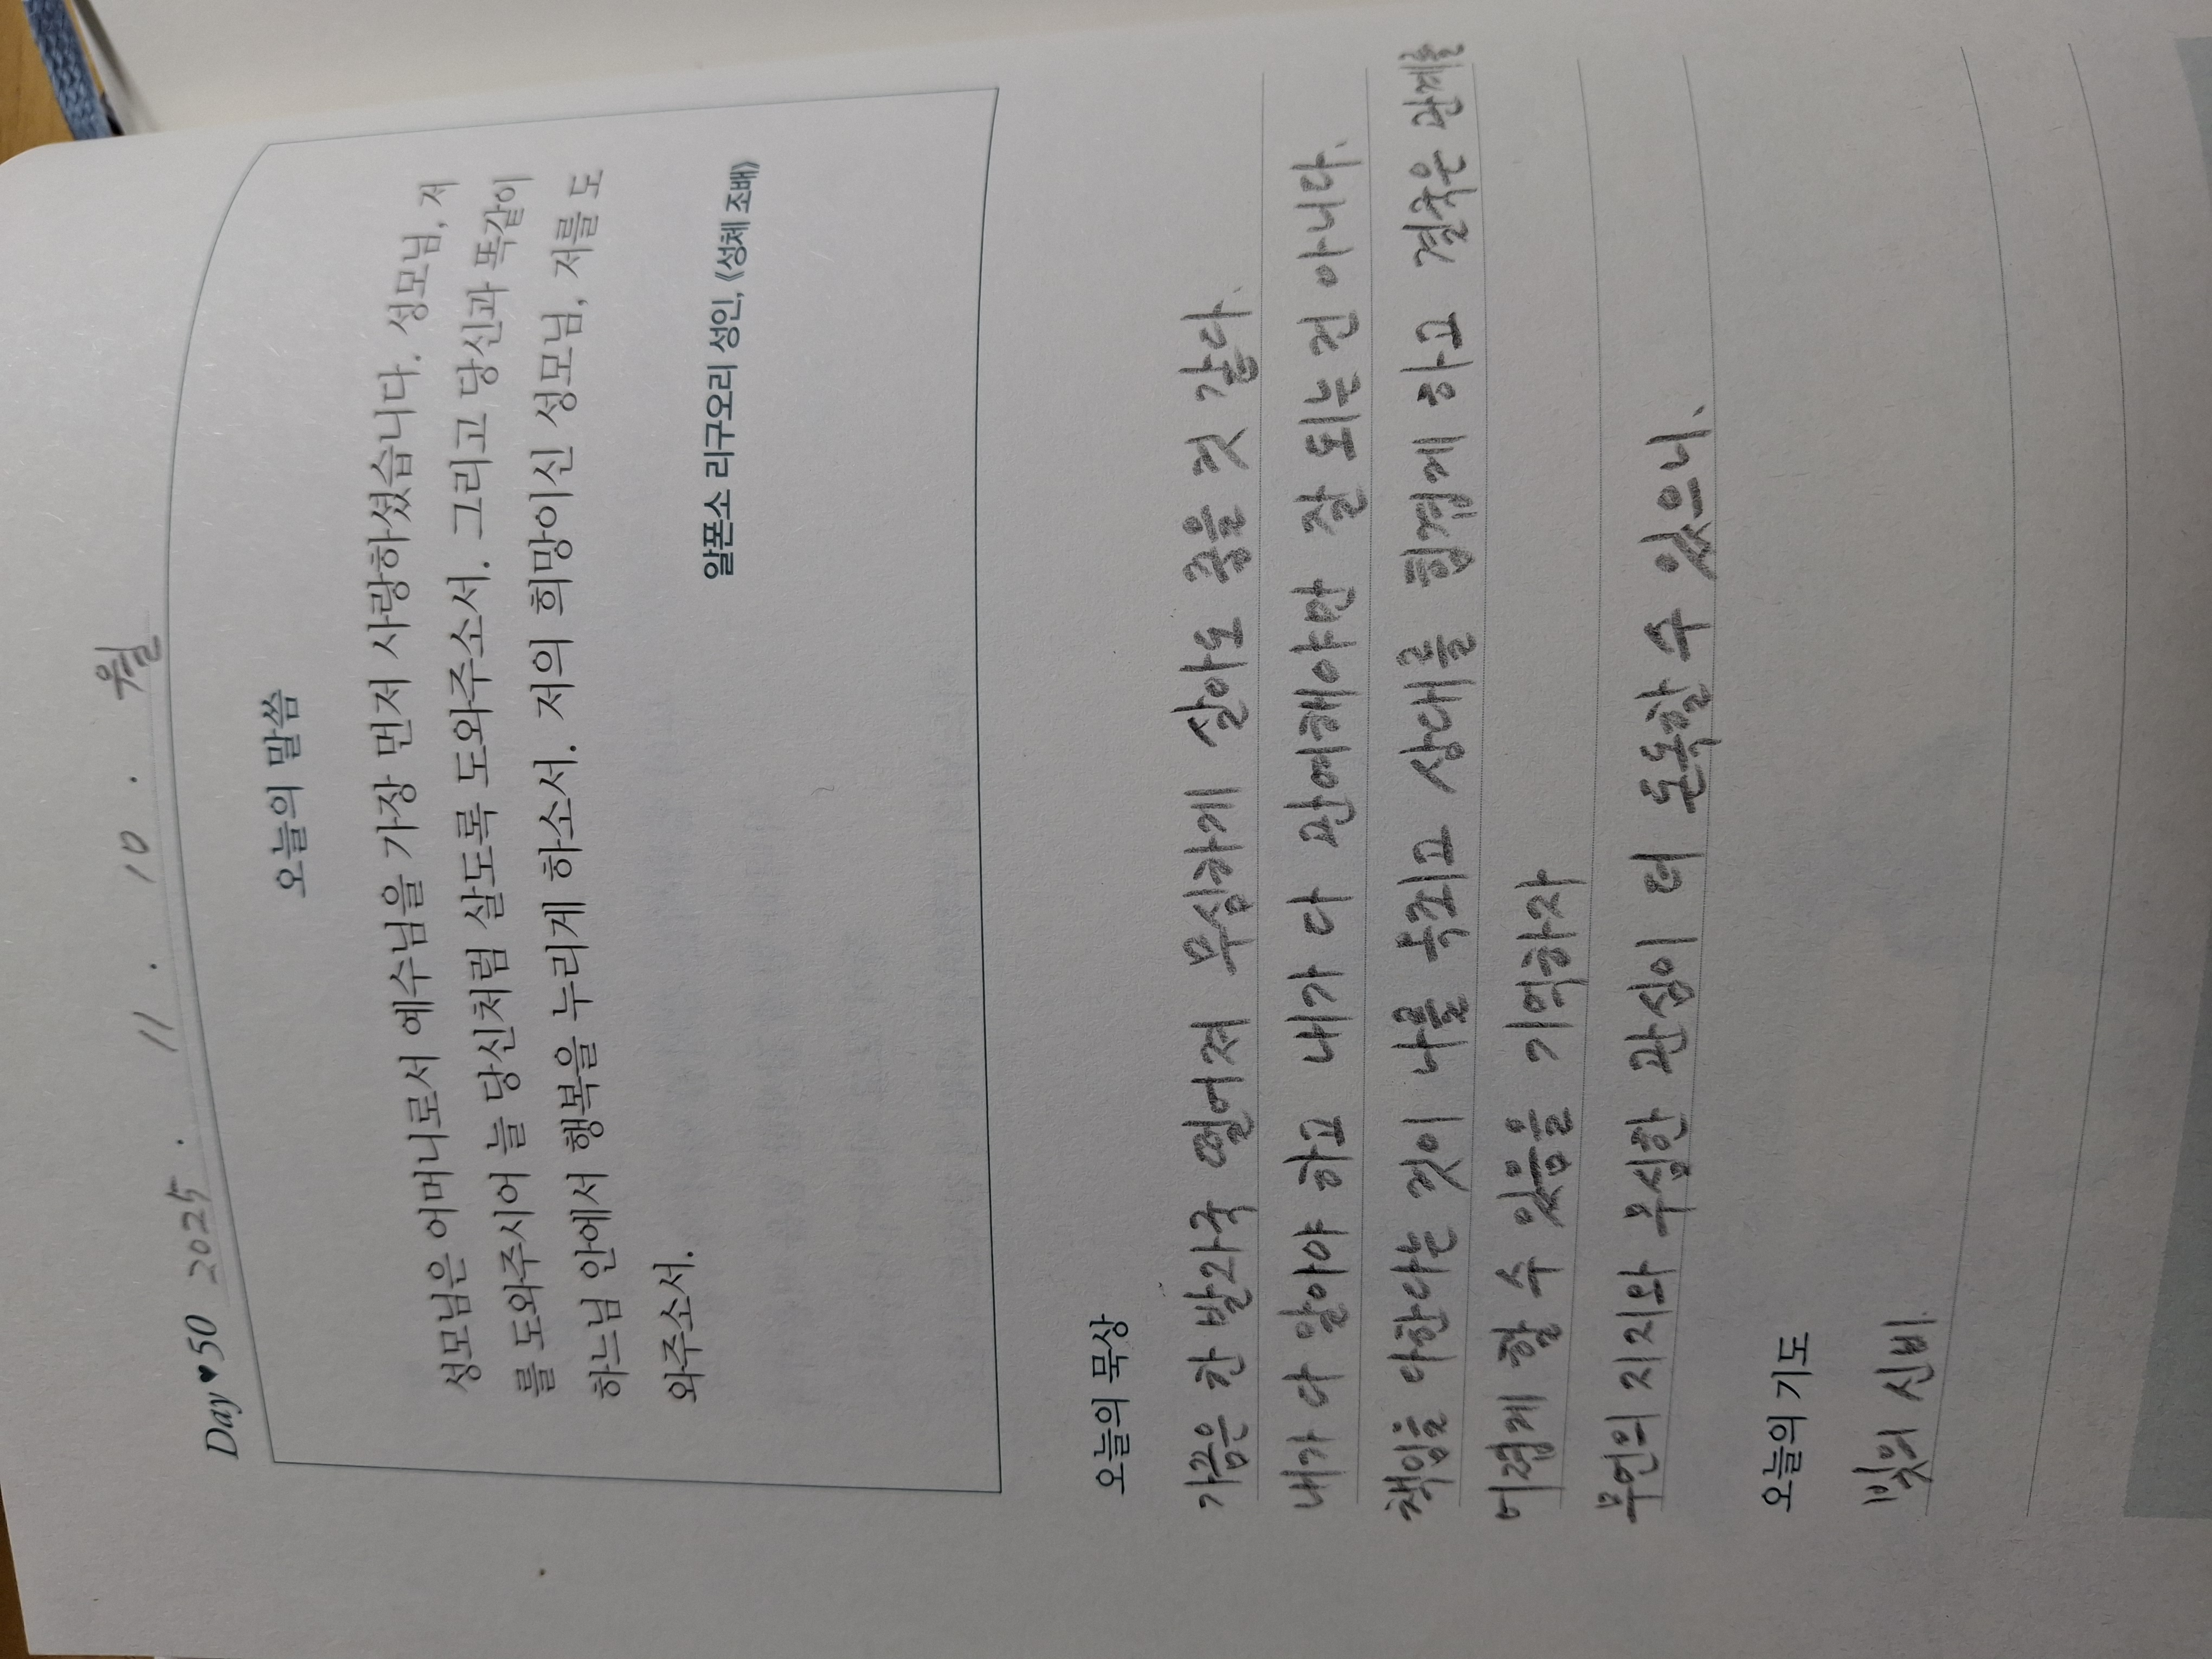 Day ♥ 50 2025. 11. 10. 월
오늘의 말씀
성모님은 어머니로서 예수님을 가장 먼저 사랑하셨습니다. 성모님, 저
를 도와주시어 늘 당신처럼 살도록 도와주소서. 그리고 당신과 똑같이
하느님 안에서 행복을 누리게 하소서. 저의 희망이신 성모님, 저를 도
와주소서.
알폰소 리구오리 성인, 《성체 조배》
오늘의 묵상
가끔은 한 발자국 떨어져 무심하게 살아도 좋을 것 같다.
내가 다 알아야 하고 내가 다 관여해야만 잘 되는건 아니다.
책임을 다한다는 것이 나를 옥죄고 상대를 힘겹게 하고 결국은 관계를
어렵게 할 수 있음을 기억하자
무언의 지지와 무심한 관심이 더 돈독할 수 있으니.
오늘의 기도
빛의 신비.